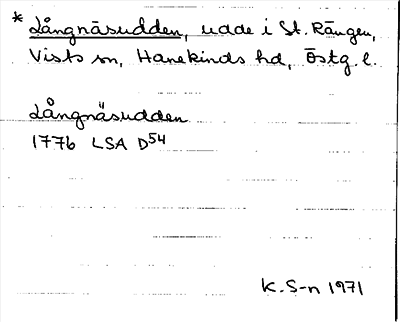 * Långnäsudden, udde i St. Rängen,
Vists sn, Hanekinds hd, Östg. l.
Långnäsudden
1776 LSA D54
K. S-n 1971